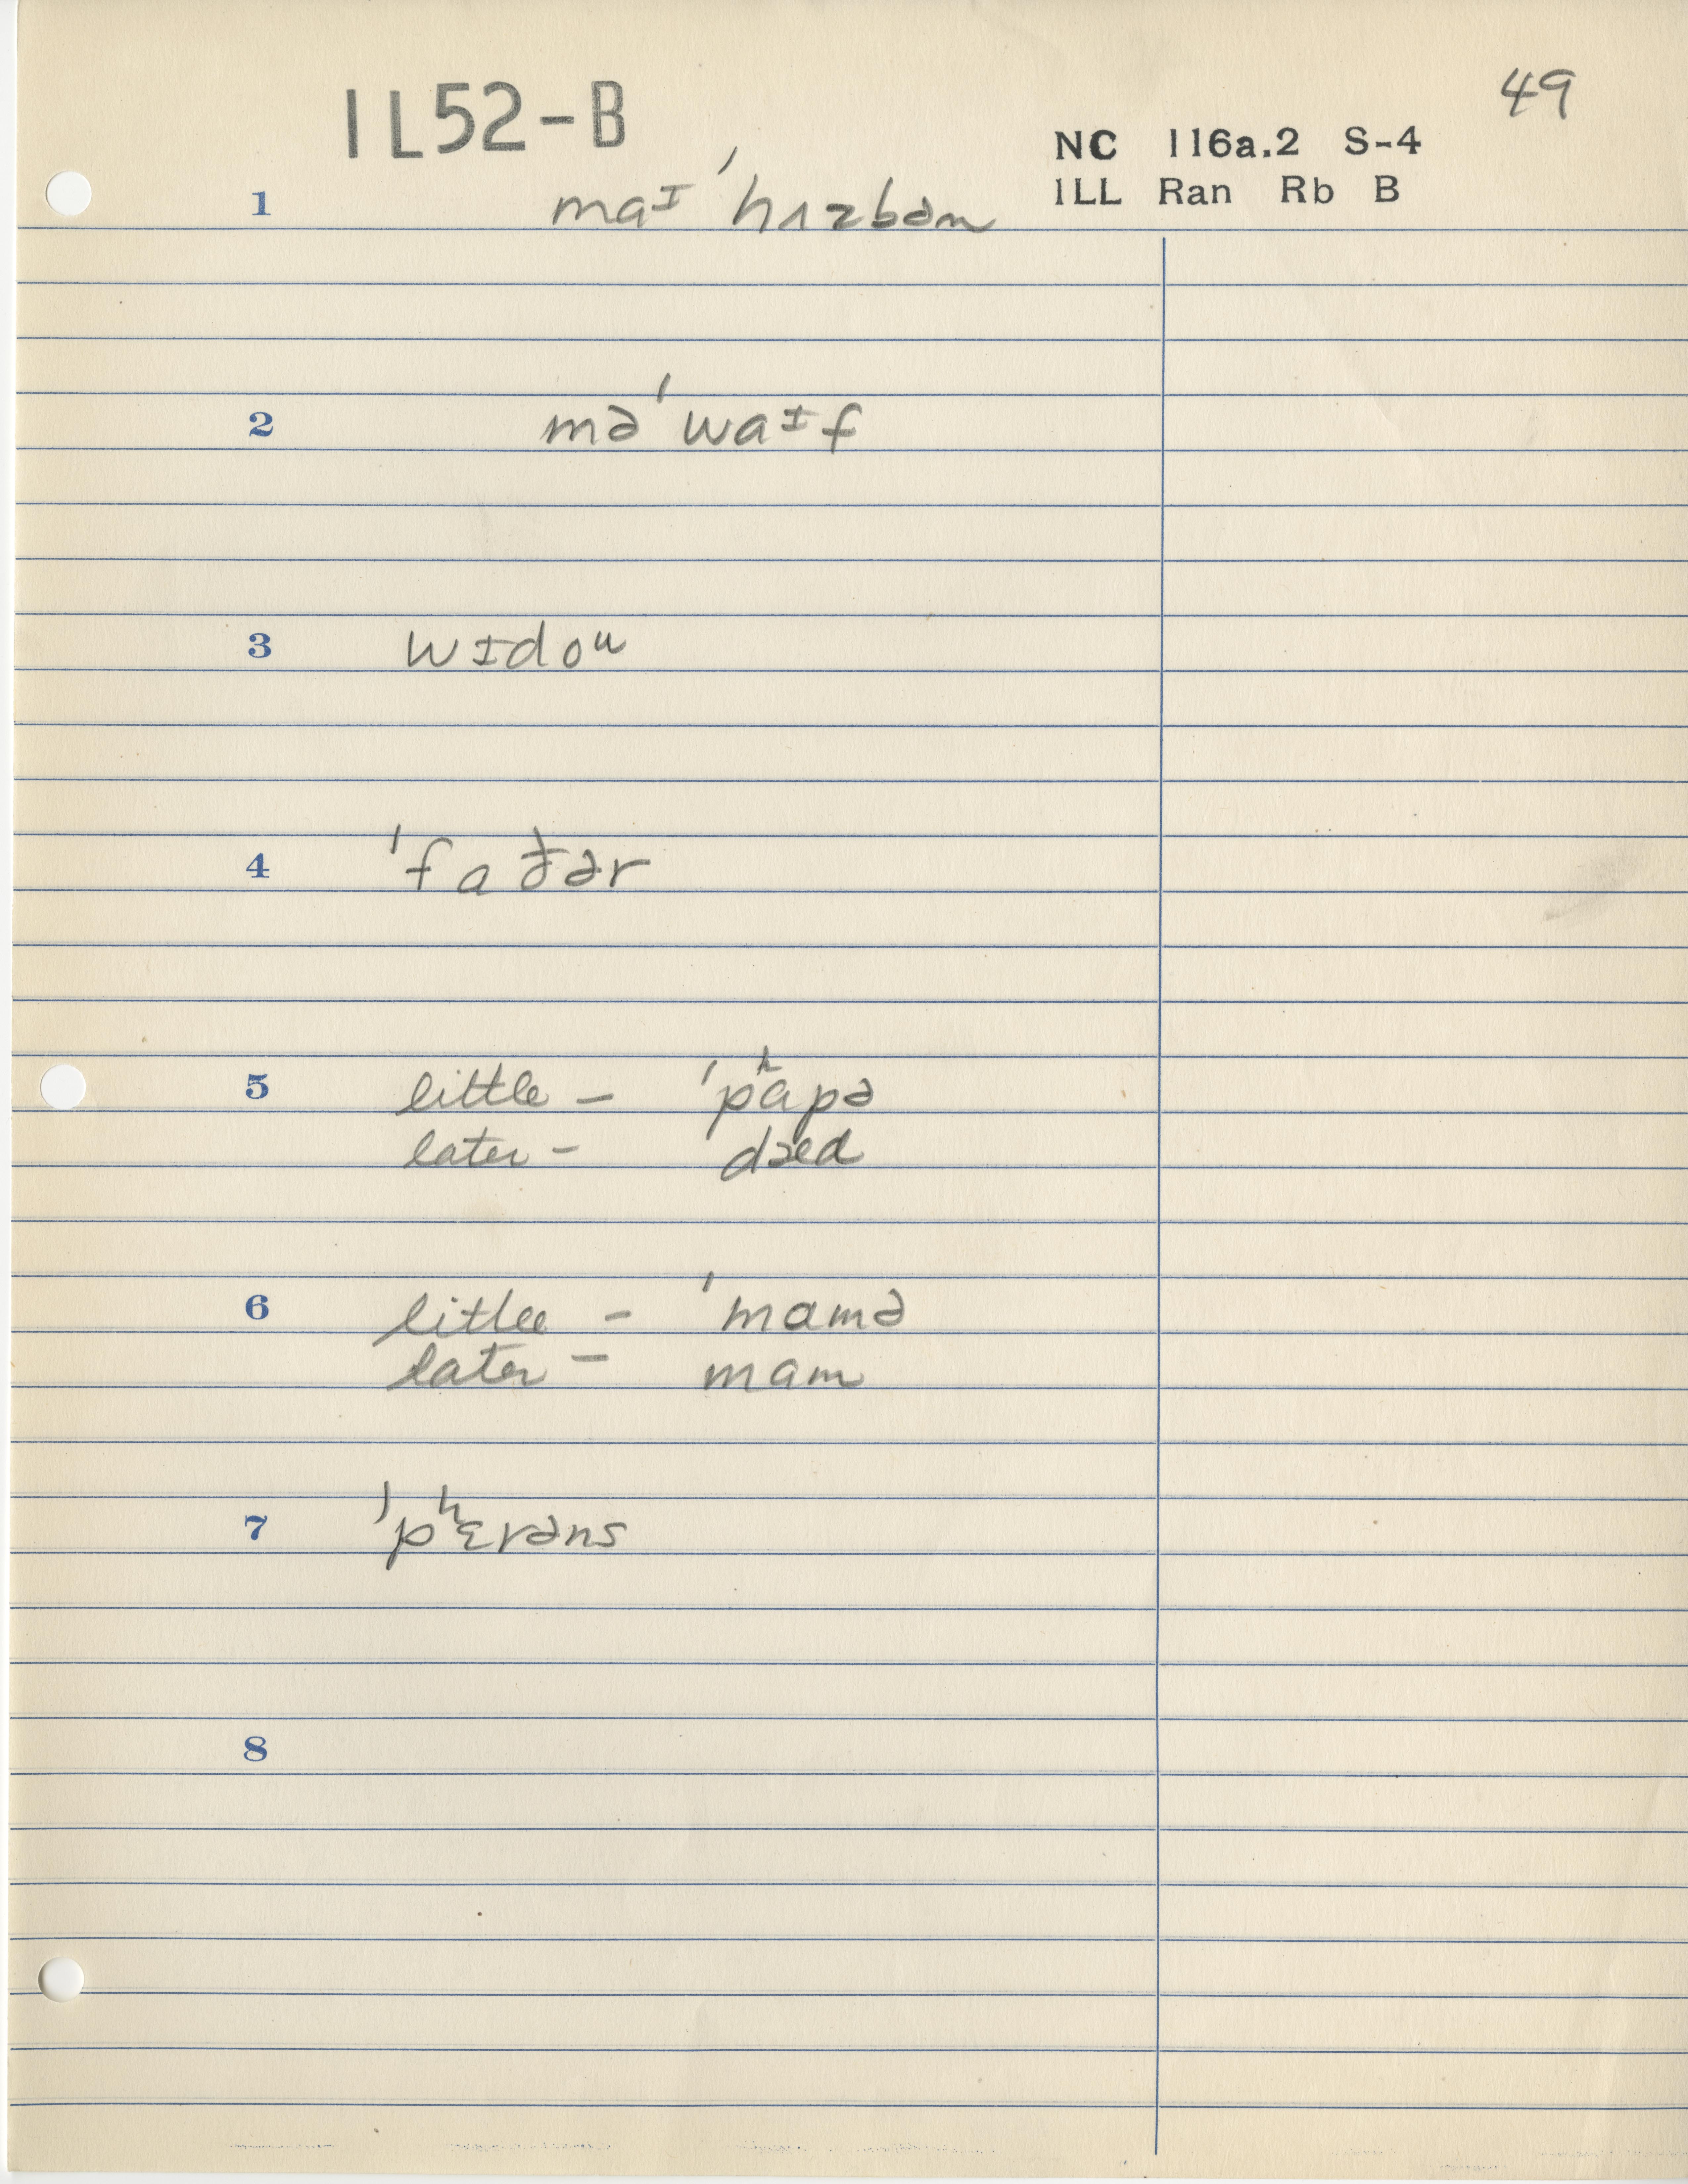 IL52-B
49
NC 116a.2 S-4
ILL Ran Rb B
1 maɪ ˈhʌzbən
2 mə ˈwaɪf
3 wɪdoᵘ
4 ˈfaðər
5 little – ˈpʰapə
later – dæd
6 little – ˈmamə
later – mam
7 ˈpʰɛrəns
8